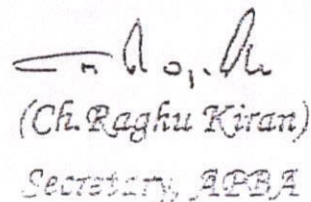 (Ch. Raghu Kiran)
Secretary, APBA